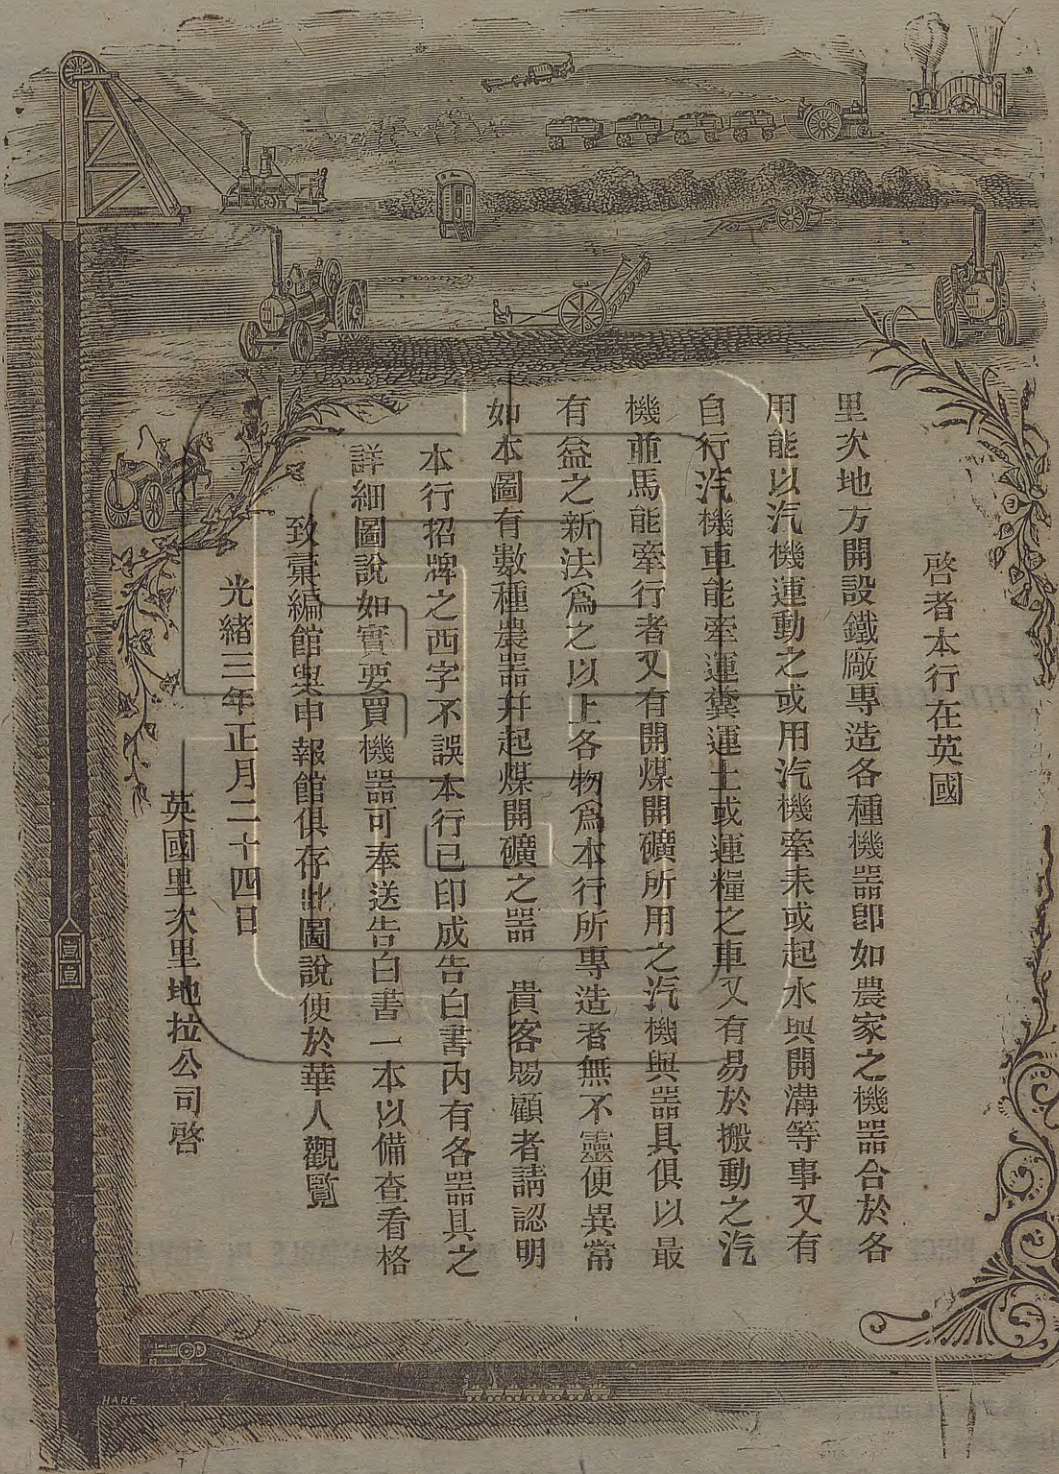 啓者本行在英國
里次地方開設鐵廠專造各種機器卽如農家之機器合於各
用能以汽機運動之或用汽機牽耒或起水與開溝等事又有
自行汽機車能牽運糞運土或運糧之車又有易於搬動之汽
機並馬能牽行者又有開煤開礦所用之汽機與器具俱以最
有益之新法爲之以上各物爲本行所專造者無不靈便異常
如本圖有數種農器幷起煤開礦之器 貴客賜顧者請認明
本行招牌之西字不誤本行已印成告白書內有各器具之
詳細圖說如實要買機器可奉送告白書一本以備查看格
致彙編館與申報館俱存此圖說便於華人觀覽
光緒三年正月二十四日
英國里次里地拉公司啓
HARE